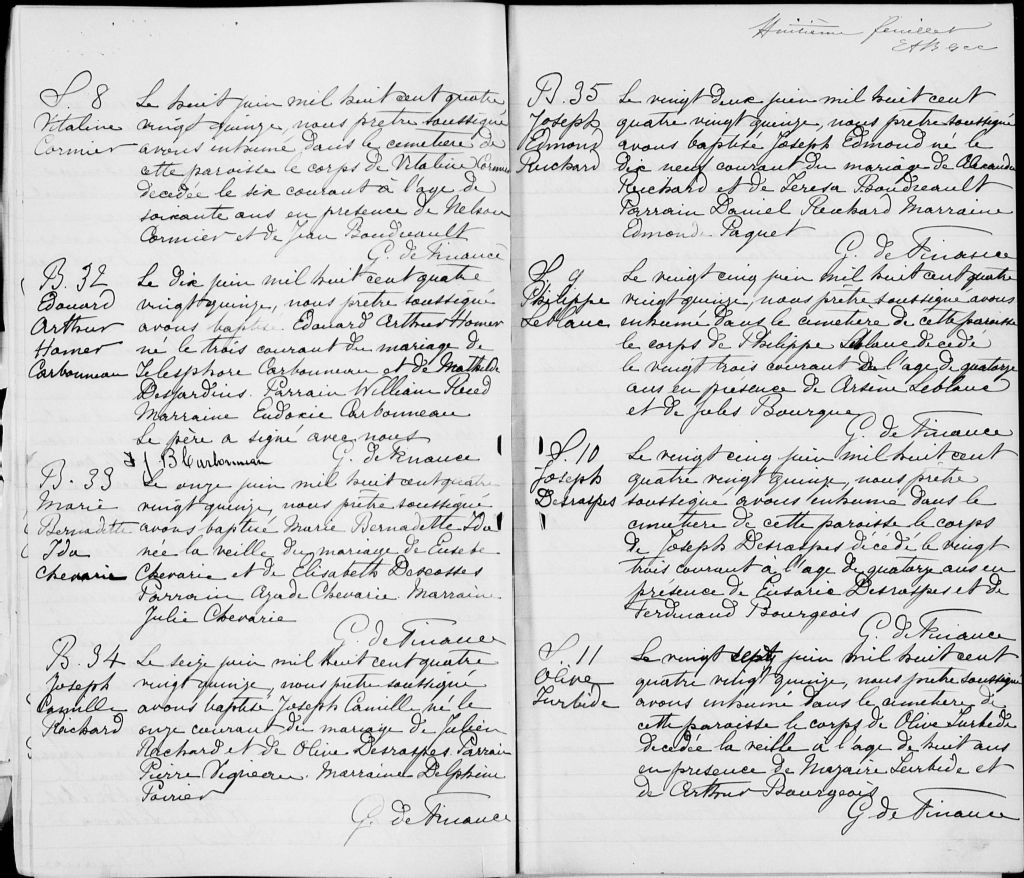 S. 8
Vitaline
Cormier
Le huit juin mil huit cent quatre
vingt quinze, nous pretre soussigné
avons inhumé dans le cemetiere de
cette paroisse le corps de Vitaline Cormier
decedée le six courant a l'age de
soixante ans en presence de Nelson
Cormier et de Jean Boudreault
G. de Finance
B. 32
Edouard
Arthur
Homer
Carbonneau
Le dix juin mil huit cent quatre
vingt quinze, nous prêtre soussigné
avons baptisé Edouard Arthur Homer
né le trois courant du mariage de
Telesphore Carbonneau et de Mathilde
Desjardins. Parrain William Reed
Marraine Eudoxie Carbonneau
Le père a signé avec nous
B Carbonneau G. de Finance
B. 33
Marie
Bernadette
Ida
Chevarie
Le onze juin mil huit cent quatre
vingt quinze, nous prêtre soussigné
avons baptisé Marie Bernadette Ida
née la veille du mariage de Eusebe
Chevarie et de Elisabeth Descosses
Parrain Azade Chevarie Marraine
Julie Chevarie
G. de Finance
B. 34
Joseph
Camille
Richard
Le seize juin mil huit cent quatre
vingt quinze, nous pretre soussigné
avons baptisé Joseph Camille né le
onze courant du mariage de Julien
Richard et de Olive Desraspes. Parrain
Pierre Vigneau Marraine Delphine
Poirier
G. de Finance
Huitième feuillet
B. 35
Joseph
Edmond
Richard
Le vingt deux juin mil huit cent
quatre vingt quinze, nous pretre soussigné
avons baptisé Joseph Edmond né le
dix neuf courant du mariage de
Richard et de Teresa Boudreault
Parrain Daniel Richard Marraine
Edmonde Paquet
G. de Finance
S. 9
Philippe
Leblanc
Le vingt cinq juin mil huit cent quatre
vingt quinze, nous prêtre soussigné avons
inhumé dans le cimetiere de cette paroisse
le corps de Philippe Leblanc décédé
le vingt trois courant a l'age de quatorze
ans en presence de Arsene Leblanc
et de Jules Bourque
G. de Finance
S. 10
Joseph
Desraspes
Le vingt cinq juin mil huit cent
quatre vingt quinze, nous prêtre
soussigné avons inhumé dans le
cimetiere de cette paroisse le corps
de Joseph Desraspes décédé le vingt
trois courant a l'age de quatorze ans en
présence de Eusarie Desraspes et de
Ferdinand Bourgeois
G. de Finance
S. 11
Olive
Turbide
Le vingt sept juin mil huit cent
quatre vingt quinze, nous pretre soussigné
avons inhumé dans le cimetiere de
cette paroisse le corps de Olive Turbide
decedée la veille a l'age de huit ans
en presence de Mazaire Turbide et
de Arthur Bourgeois
G de Finance